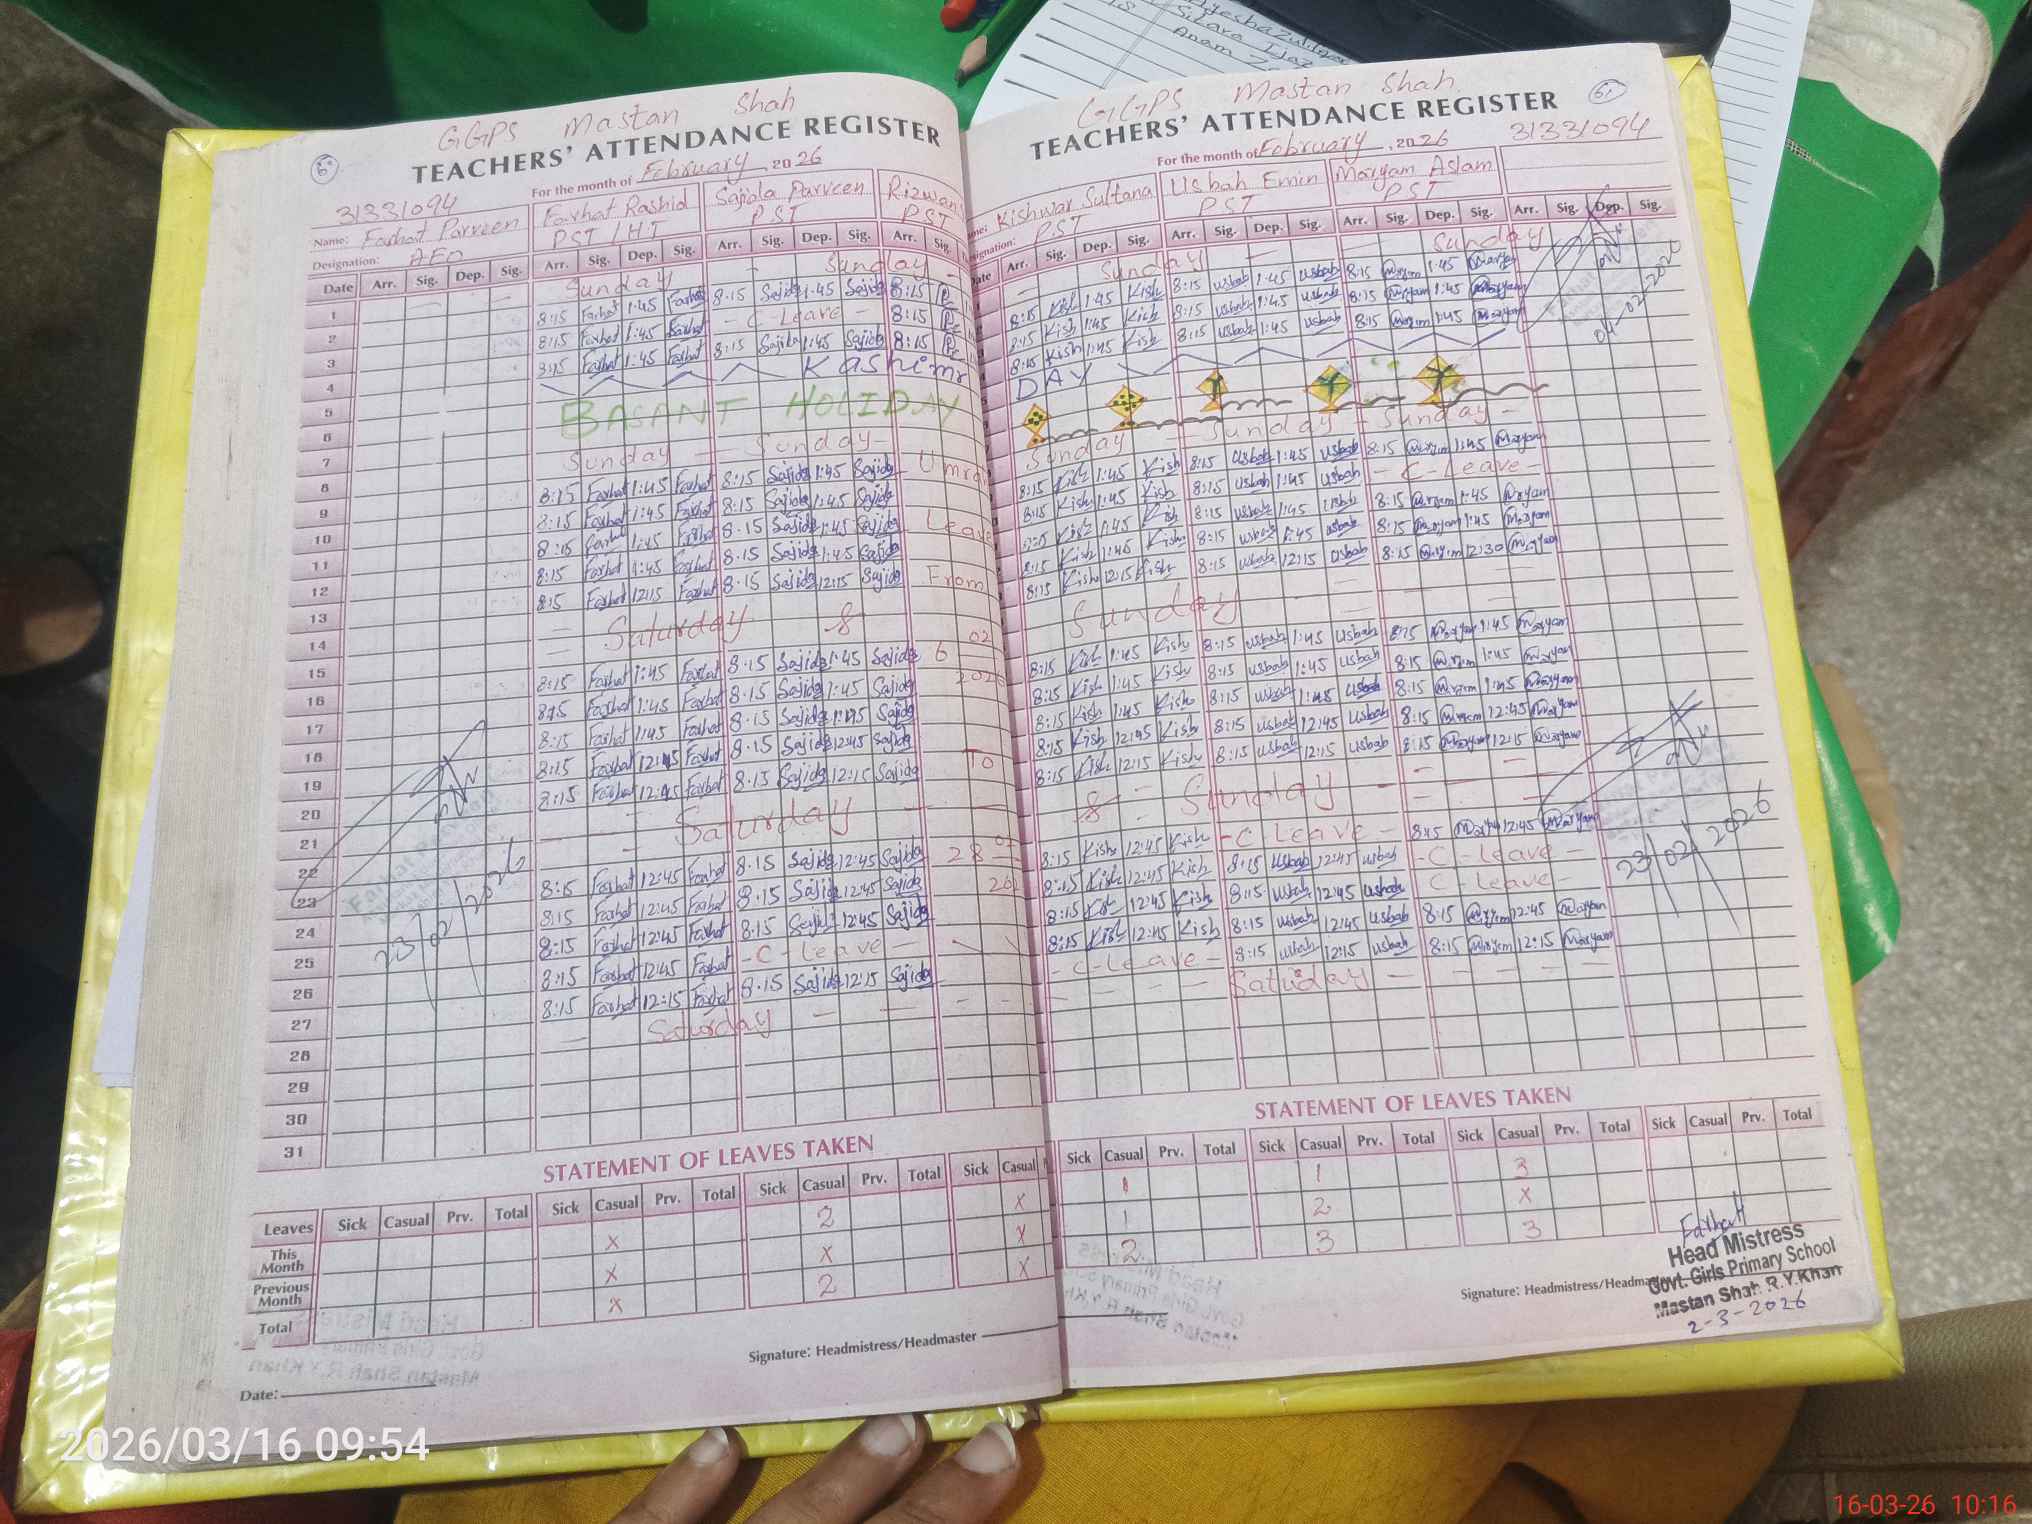 GGPS Mastan Shah
TEACHERS' ATTENDANCE REGISTER
For the month of February, 2026
31331094
Name: Farhat Parveen
Farhat Rashid
Sajida Parveen
Designation: AEO
PST / HT
PST
PST
Date Arr. Sig. Dep. Sig. Arr. Sig. Dep. Sig. Arr. Sig. Dep. Sig. Arr.
1 Sunday Sunday
2 8:15 Farhat 1:45 Farhat 8:15 Sajida 1:45 Sajida 8:15
3 8:15 Farhat 1:45 Farhat - C - Leave - 8:15
4 8:15 Farhat 1:45 Farhat 8:15 Sajida 1:45 Sajida 8:15
5 Kashimr
6 BASANT HOLIDAY
7
8 Sunday Sunday
9 8:15 Farhat 1:45 Farhat 8:15 Sajida 1:45 Sajida
10 8:15 Farhat 1:45 Farhat 8:15 Sajida 1:45 Sajida
11 8:15 Farhat 1:45 Farhat 8:15 Sajida 1:45 Sajida Leave
12 8:15 Farhat 1:45 Farhat 8:15 Sajida 1:45 Sajida
13 8:15 Farhat 12:15 Farhat 8:15 Sajida 12:15 Sajida From
14 Saturday &
15
16 8:15 Farhat 1:45 Farhat 8:15 Sajida 1:45 Sajida 6 02 2026
17 8:15 Farhat 1:45 Farhat 8:15 Sajida 1:45 Sajida
18 8:15 Farhat 1:45 Farhat 8:15 Sajida 1:45 Sajida
19 8:15 Farhat 12:45 Farhat 8:15 Sajida 12:45 Sajida To
20 8:15 Farhat 12:45 Farhat 8:15 Sajida 12:15 Sajida
21 Saturday
22
23 8:15 Farhat 12:45 Farhat 8:15 Sajida 12:45 Sajida 28
24 8:15 Farhat 12:45 Farhat 8:15 Sajida 12:45 Sajida
25 8:15 Farhat 12:45 Farhat 8:15 Sajida 12:45 Sajida
26 8:15 Farhat 12:45 Farhat - C - Leave -
27 8:15 Farhat 12:15 Farhat 8:15 Sajida 12:15 Sajida
28 Saturday
29
30
31
23/02/2026
STATEMENT OF LEAVES TAKEN
Leaves Sick Casual Prv. Total Sick Casual Prv. Total Sick Casual Prv. Total Sick Casual
This Month x 2 x
Previous Month x x x
Total x 2 x
Signature: Headmistress/Headmaster
Date:
GGPS Mastan Shah
TEACHERS' ATTENDANCE REGISTER
61
For the month of February, 2026
31331094
Kishwar Sultana
Usbah Emin
Maryam Aslam
PST
PST
PST
Arr. Sig. Dep. Sig. Arr. Sig. Dep. Sig. Arr. Sig. Dep. Sig. Arr. Sig. Dep. Sig.
Sunday Sunday
8:15 Kish 1:45 Kish 8:15 Usbah 1:45 Usbah 8:15 Maryam 1:45 Maryam
8:15 Kish 1:45 Kish 8:15 Usbah 1:45 Usbah 8:15 Maryam 1:45 Maryam
8:15 Kish 1:45 Kish 8:15 Usbah 1:45 Usbah 8:15 Maryam 1:45 Maryam
DAY
04-02-2026
Sunday - Sunday - Sunday -
8:15 Kish 1:45 Kish 8:15 Usbah 1:45 Usbah 8:15 Maryam 1:45 Maryam
8:15 Kish 1:45 Kish 8:15 Usbah 1:45 Usbah - C - Leave -
8:15 Kish 1:45 Kish 8:15 Usbah 1:45 Usbah 8:15 Maryam 1:45 Maryam
8:15 Kish 1:45 Kish 8:15 Usbah 1:45 Usbah 8:15 Maryam 1:45 Maryam
8:15 Kish 12:15 Kish 8:15 Usbah 12:15 Usbah 8:15 Maryam 12:30 Maryam
Sunday
8:15 Kish 1:45 Kish 8:15 Usbah 1:45 Usbah 8:15 Maryam 1:45 Maryam
8:15 Kish 1:45 Kish 8:15 Usbah 1:45 Usbah 8:15 Maryam 1:45 Maryam
8:15 Kish 1:45 Kish 8:15 Usbah 1:45 Usbah 8:15 Maryam 1:45 Maryam
8:15 Kish 12:45 Kish 8:15 Usbah 12:45 Usbah 8:15 Maryam 12:45 Maryam
8:15 Kish 12:15 Kish 8:15 Usbah 12:15 Usbah 8:15 Maryam 12:15 Maryam
& Sunday
8:15 Kish 12:45 Kish - C Leave - 8:15 Maryam 12:45 Maryam
8:15 Kish 12:45 Kish 8:15 Usbah 12:45 Usbah - C - Leave -
8:15 Kish 12:45 Kish 8:15 Usbah 12:45 Usbah C - Leave -
8:15 Kish 12:45 Kish 8:15 Usbah 12:45 Usbah 8:15 Maryam 12:45 Maryam
- C - Leave - 8:15 Usbah 12:15 Usbah 8:15 Maryam 12:15 Maryam
Saturday
23/02/2026
STATEMENT OF LEAVES TAKEN
Sick Casual Prv. Total Sick Casual Prv. Total Sick Casual Prv. Total Sick Casual Prv. Total
1 1 3
1 2 x
2 3 3
Signature: Headmistress/Headmaster
Farhat
Head Mistress
Govt. Girls Primary School
Mastan Shah R.Y.Khan
2-3-2026
2026/03/16 09:54
16-03-26 10:16